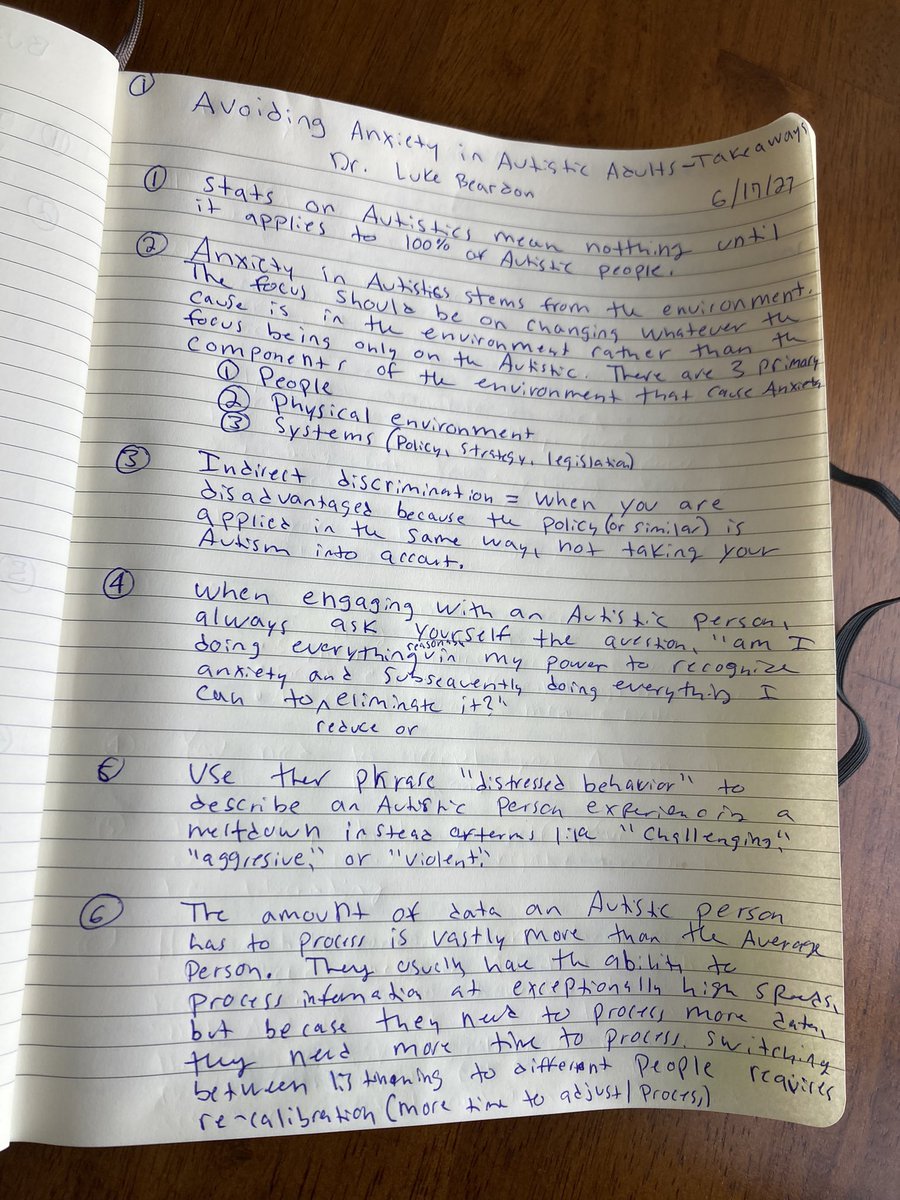 ①
Avoiding Anxiety in Autistic Adults-Takeaways
Dr. Luke Beardon
6/17/27
① Stats on Autistics mean notthing until
it applies to 100% of Autistic people.
② Anxiety in Autistics stems from the environment.
The focus should be on changing whatever the
cause is in the environment rather than the
focus being only on the Autistic. There are 3 primary
components of the environment that cause Anxiety
① People
② Physical environment
③ Systems (Policy, Strategy, legislation)
③ Indirect discrimination = when you are
disadvantaged because the policy (or similar) is
applied in the same way, not taking your
Autism into accout.
④ When engaging with an Autistic person,
always ask yourself the question, "am I
doing everything reasonable in my power to recognize
anxiety and subsequently doing everything I
can to eliminate it?"
reduce or
5 Use ther phrase "distressed behavior" to
describe an Autistic person experiencin a
meltdown instead of terms like "challenging",
"aggresive," or "violent".
⑥ The amount of data an Autistic person
has to process is vastly more than the Average
Person. They usully have the ability to
process information at exceptionally high speeds,
but because they need to process more data,
they need more time to process. switching
between listening to different people requires
re-calibration (more time to adjust/process)